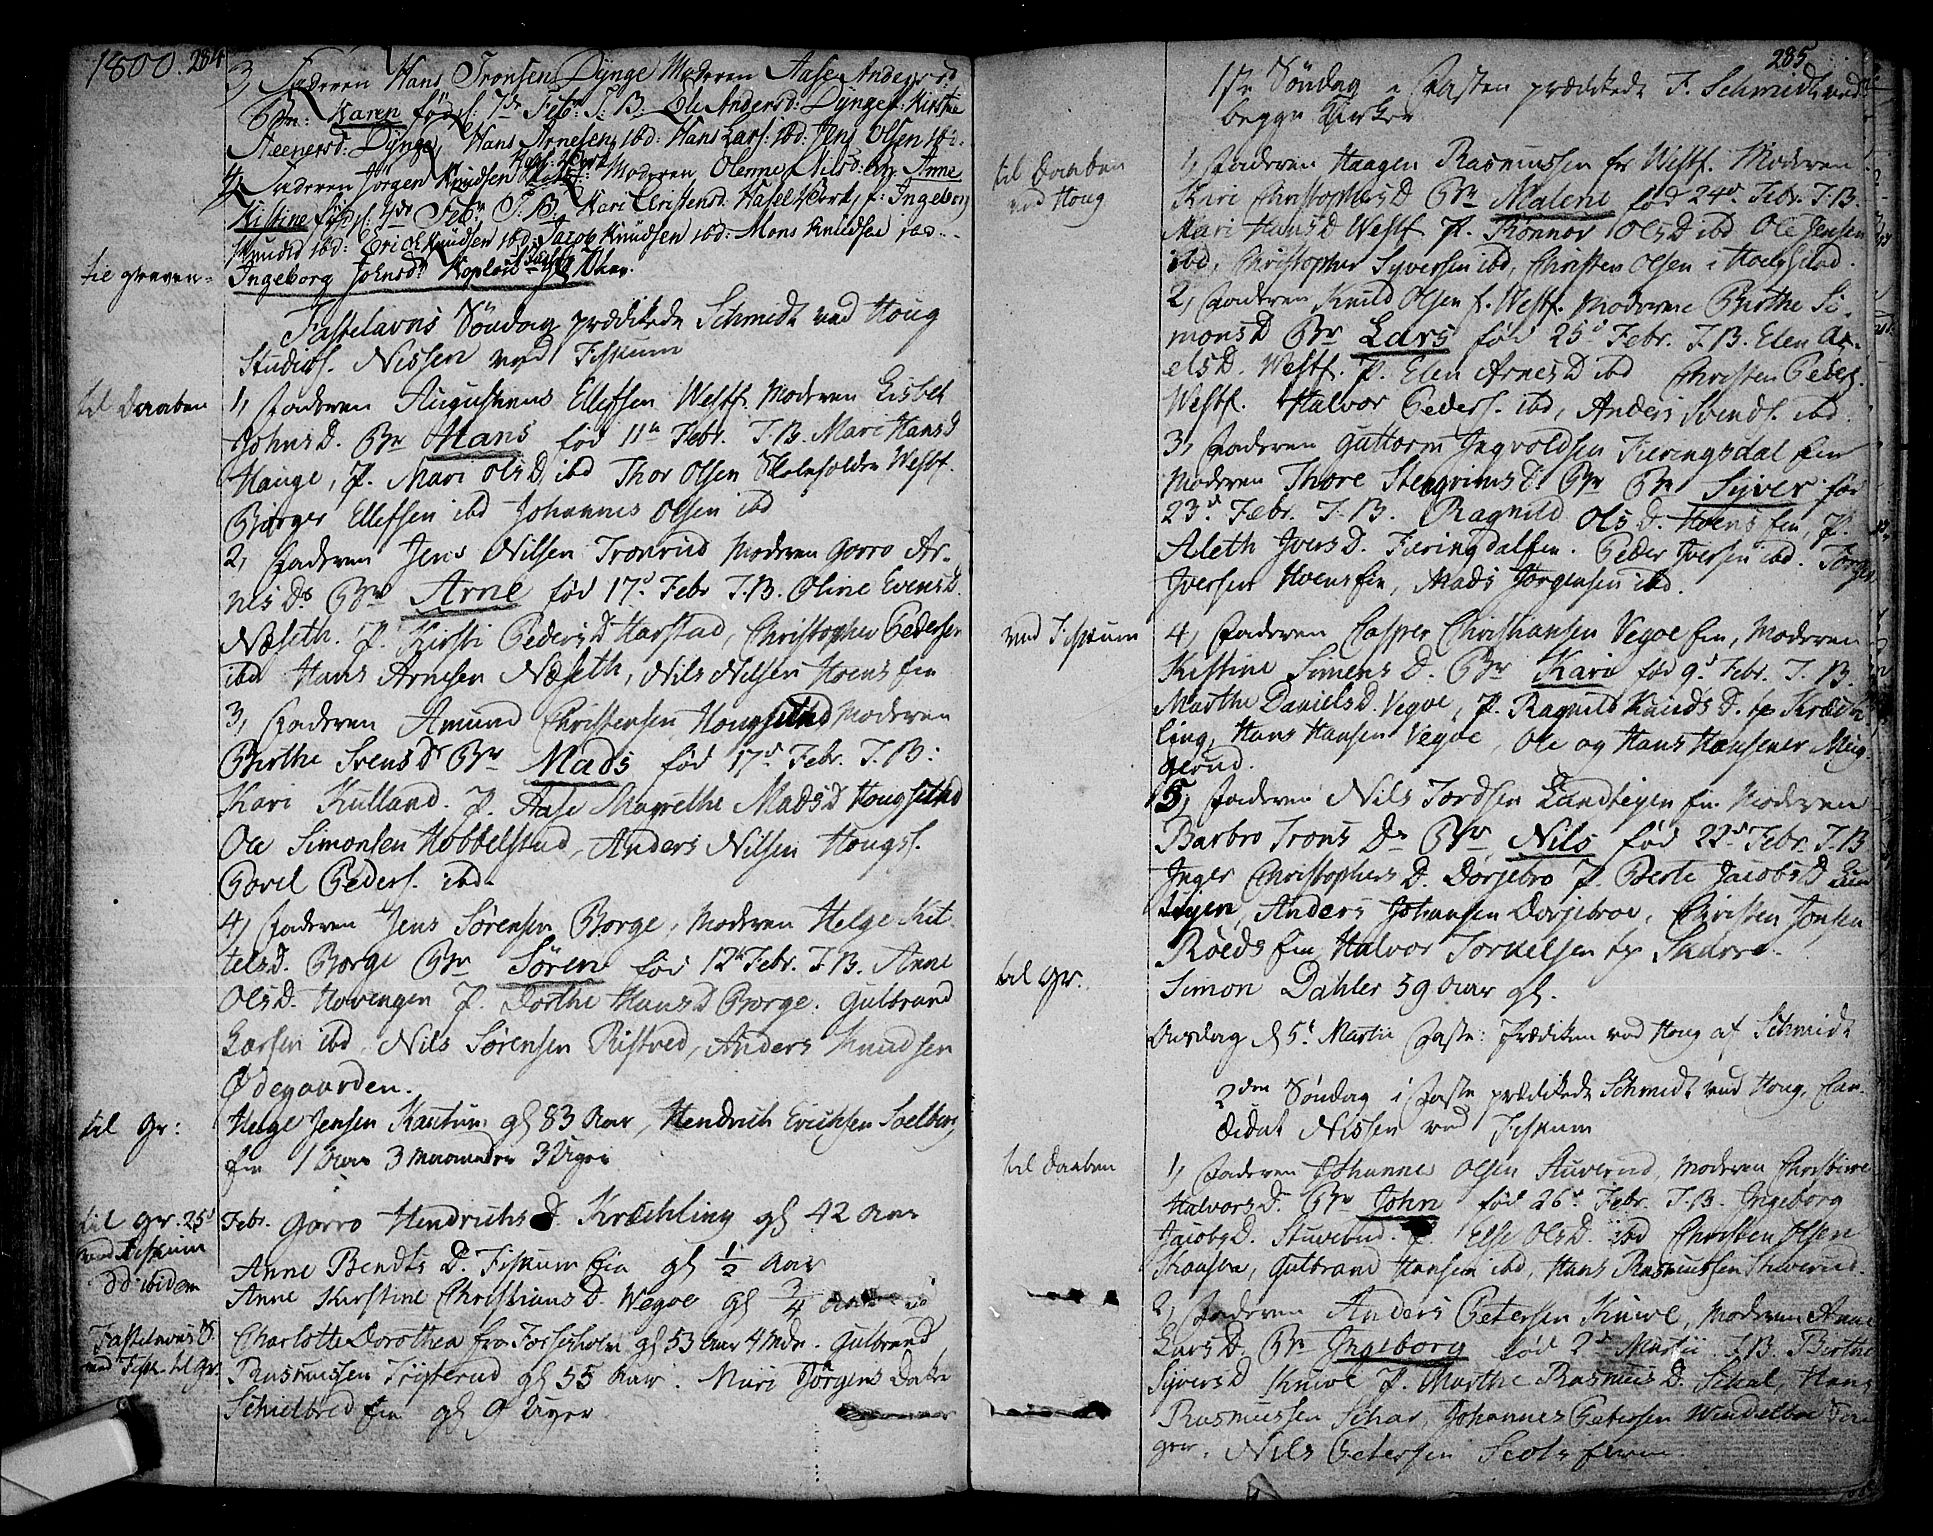 1800. 284
3, Faderen Hans Tronsen Dynge Moderen Aase Andersd
Bn: Karen født 7de Febr. T. B. Eli Andersd: Dynge f: Kirstie
Steenersd: Dynge, Hans Arnesen, ibd: Hans Lars: ibd: Jens Olsen ibd.
4, Faderen Jørgen Knudsen Moderen Olenne Nilsd: Bn Anne
Kistine født Febr. T. B. Kari Cristensd: Hasel f: Ingeborg
Knudsd ibd: Erich Knudsen ibd: Jacob Knudsen ibd: Mons Knudsen ibd.
til graven. Ingeborg Johnsd: Kopl
Fastelavns Søndag prædikede Schmidt ved Houg
Studios. Nissen ved Fiskum
til Daaben 1, Faderen Augustinus Ellefsen Westf. Moderen Lisbet
Johns D. Bn Hans fød 11te Febr. T. B. Mari Hans D
Hauge, P. Mari Ols D, ibd Thor Olsen Skoleholder Westf.
Børger Ellefsen ibd Johannes Olsen ibd
2, Faderen Jens Nilsen Tronrud Moderen Gorro Ar-
nes D. Bn Arne fød 17d Febr T. B. Oline Evens D.
Næseth. P. Kirsti Peders D Harstad, Christopher Pedersen
ibd Hans Arnesen Næseth, Nils Nilsen Hoens Ein
3, Faderen Amund Christensen Hougsetad Moderen
Birthe Svens D Bn Mads fød 17d Febr. T. B:
Kari Kulland. P. Aase Magrethe Mads D Hougsetad
Ole Simonsen Hobbelstad, Anders Nilsen Hougs.
Povel Peders. ibd.
4, Faderen Jens Sørensen Borge, Moderen Helge Kit-
tels D. Borge Bn Søren fød 12te Febr. T. B. Anne
Ols D. Hovengen P. Dorthe Hans D Borge. Gulbrand
Larsen ibd, Nils Sørensen Ristved, Anders Knudsen
Ødegaarden.
til Gr: Helge Jensen Kastum gl 83 Aar, Hendrich Erichsen Soelberg
Ein 1 Aar 3 Maaneder 3 Uger
til Gr. 25d Febr. Gorro Hendrichs D. Krechling gl 42 Aar
ved Fiskum Anne Bendts D. Fiskum Ein gl 1/2 Aar
dd ibidem Anne Kirstine Christians D. Wegoe gl 3/4 Aar
Fastelavns S. Charlotte Dorothea fra Fossesholm gl 53 Aar 4 Mdr. Gulbrand
ved Fisk. til Gr. Rasmussen gl 55 Aar. Mari Jørgens Datr
Schielbred Ein gl 9 Uger
285
1ste Søndag i Fasten prædikede F. Schmidt ved
begge Kirker
til Daaben 1, Faderen Haagen Rasmussen fr Westf. Moderen
ved Houg Kari Christophers D Bn Malene fød 24d Febr. T. B.
Mari Hans D Westf. P. Rønnov Ols D ibd Ole Jensen
ibd, Christopher Syversen ibd, Christen Olsen i
2, Faderen Knud Olsen f. Westf. Moderene Birthe Si-
mons D Bn Lars fød 25d Febr. T. B. Elen Ax-
els D. Westf. P. Elen Arnes D ibd Christen Peders.
Westf. Halvor Peders. ibd, Anders Svends. ibd.
3, Faderen Guttorm Ingvoldsen Fieringsdal Ein
Moderen Thore Stengrims D. Bn Bn Syver fød
23d Febr. T. B. Ragnild Ols D. Hoens Ein, P.
Aleth Ivers D. Fieringdal Ein. Peder Iversen ibd. Torger
Iversen Hoens Ein, Mads Jørgensen ibd.
ved Fiskum 4, Faderen Casper Christiansen Vegoe Ein, Moderen
Kistine Simens D. Bn Kari fød 9d Febr. T. B.
Marthe Daniels D. Vegoe, P. Ragnild Knuds D. Krech-
ling, Hans Hansen Vegoe, Ole og Hans Hansener Mug-
gerud.
5, Faderen Nils Tordsen Landtegen Ein Moderen
Barbro Trons D. Bn Nils fød 22d Febr. T. B
Inger Christophers D. Dorjebro P. Berte Jacobs D Lan
tegen, Anders Johansen Dorjebroe, Christen Jonsen
Røeds Ein Halvor Torkelsen Skarre.
til Gr. Simon Dahler 59 Aar gl.
Onsdag d 5t Martii Faste: Prædiken ved Houg af Schmidt
2den Søndag i Faste prædikede Schmidt ved Houg, Can-
didat Nissen ved Fiskum
til Daaben 1, Faderen Johannes Olsen Stuverud, Moderen Christine
Halvors D. Bn John fød 26d Febr. T. B. Ingeborg
Jacobs D. Stuverud. P. Else Ols D. ibd Christen Olsen
Skaasen, Gulbrand Hansen ibd, Hans Rasmussen Stuverud.
2, Faderen Anders Petersen Knive, Moderen Anne
Lars D. Bn Ingeborg fød 2d Martii T. B. Birthe
Syvers D Knive P. Marthe Rasmus D. Schal, Hans
Rasmussen Schar, Johannes Petersen
Nils Petersen